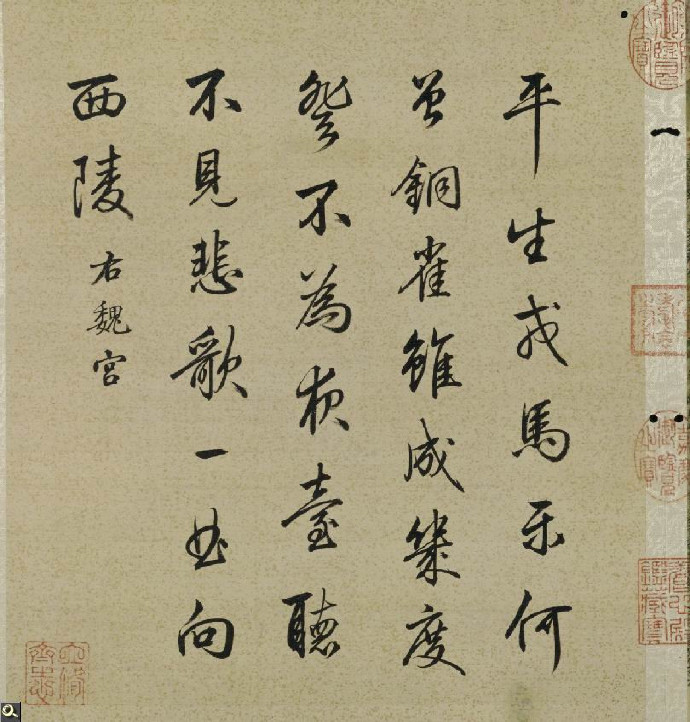 平生戎馬樂何
曾銅雀雖成幾度
登不為夜臺聽
不見悲歌一曲向
西陵 右魏宮